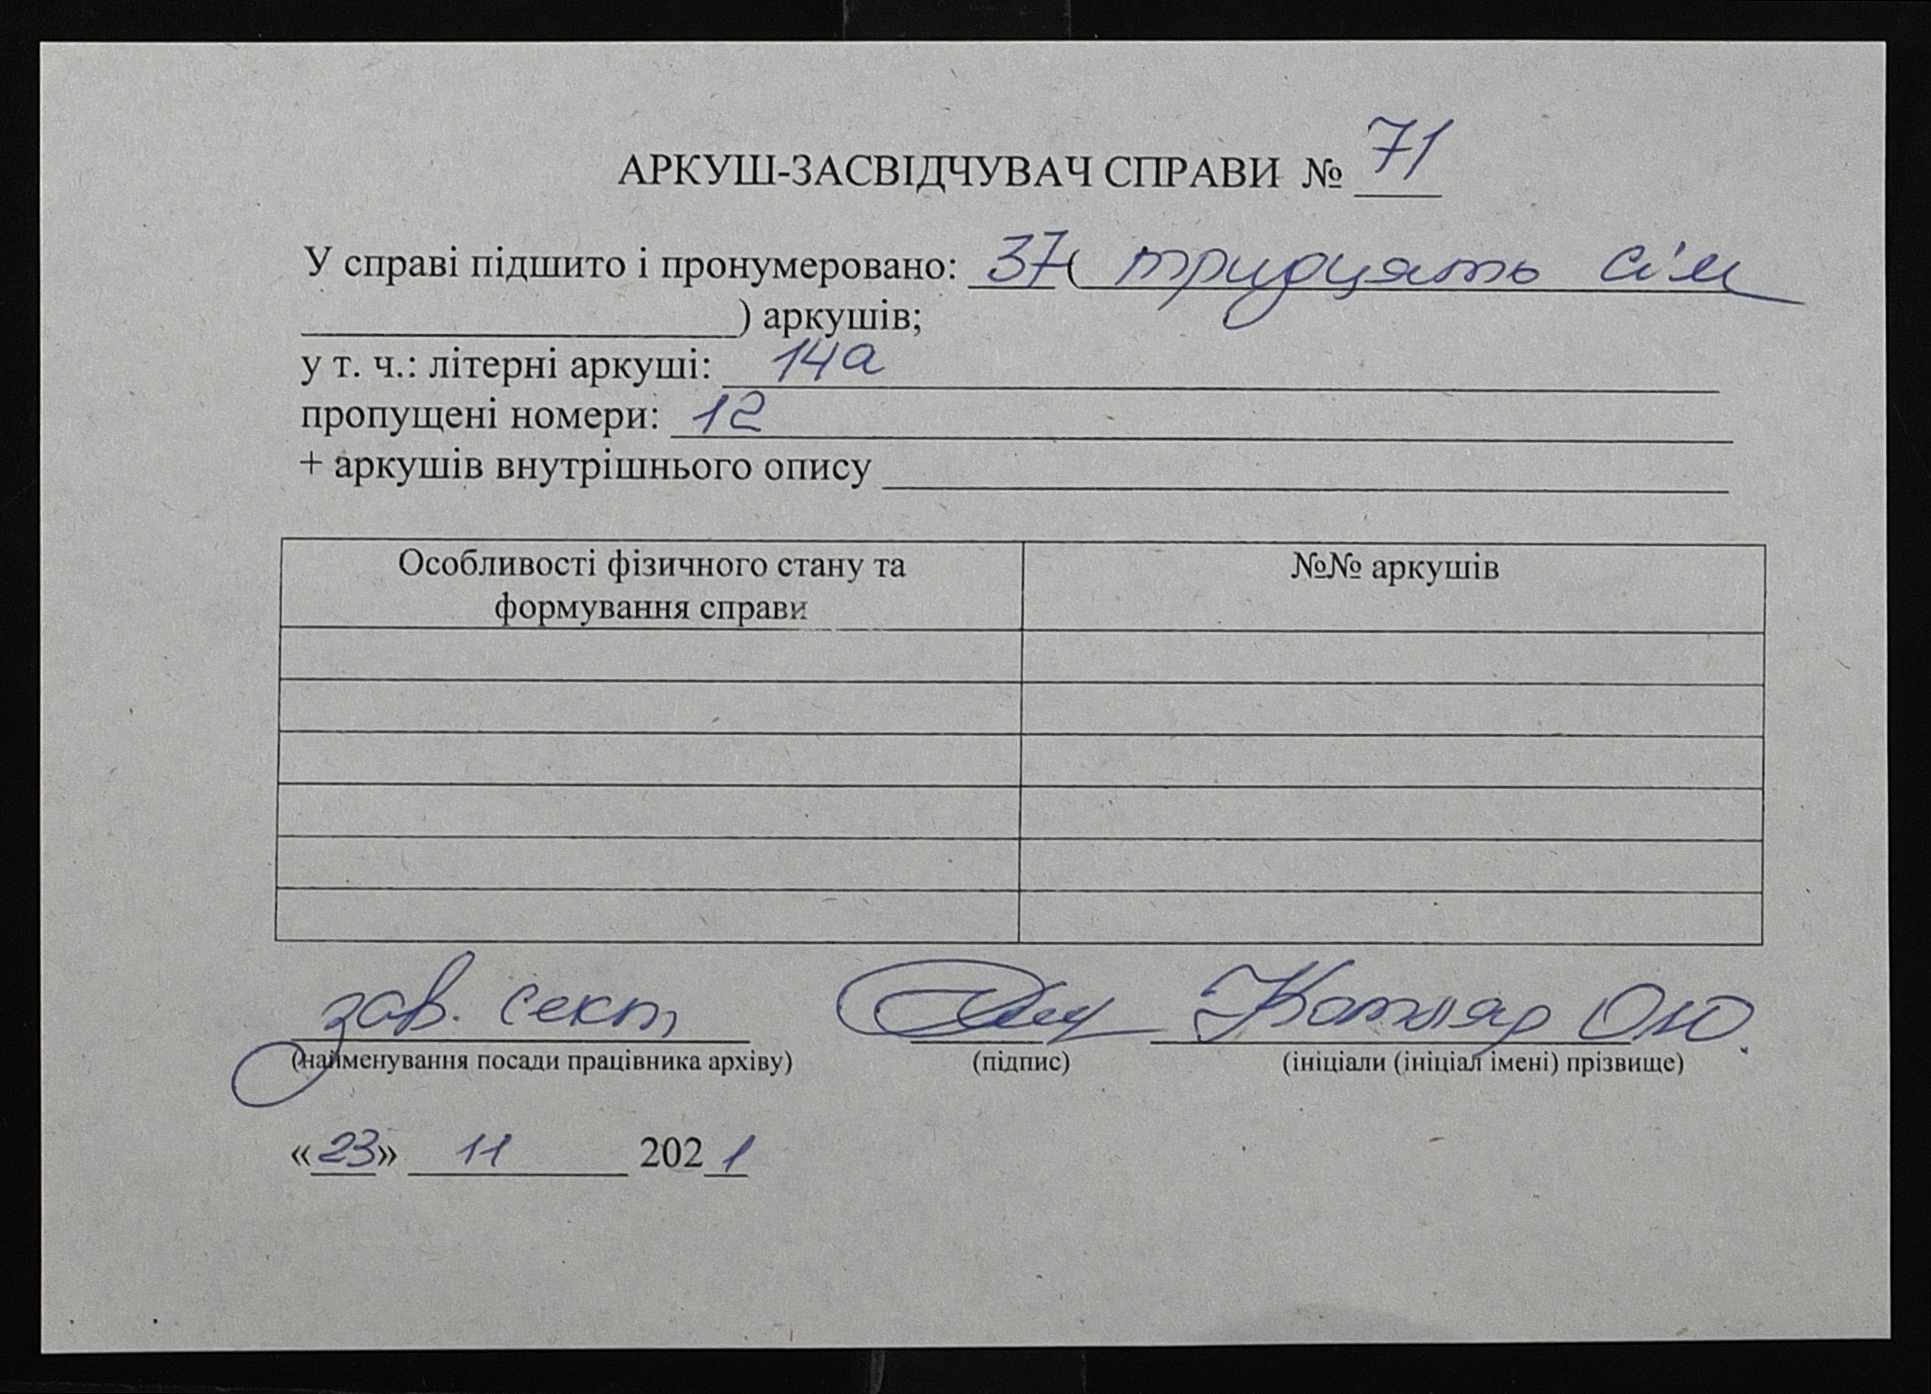 АРКУШ-ЗАСВІДЧУВАЧ СПРАВИ № 71
У справі підшито і пронумеровано: 37 ( тридцять сім
) аркушів;
у т. ч.: літерні аркуші: 14а
пропущені номери: 12
+ аркушів внутрішнього опису
Особливості фізичного стану та формування справи
№№ аркушів
зав. сект Котляр О.Ю.
(найменування посади працівника архіву) (підпис) (ініціали (ініціал імені) прізвище)
«23» 11 2021